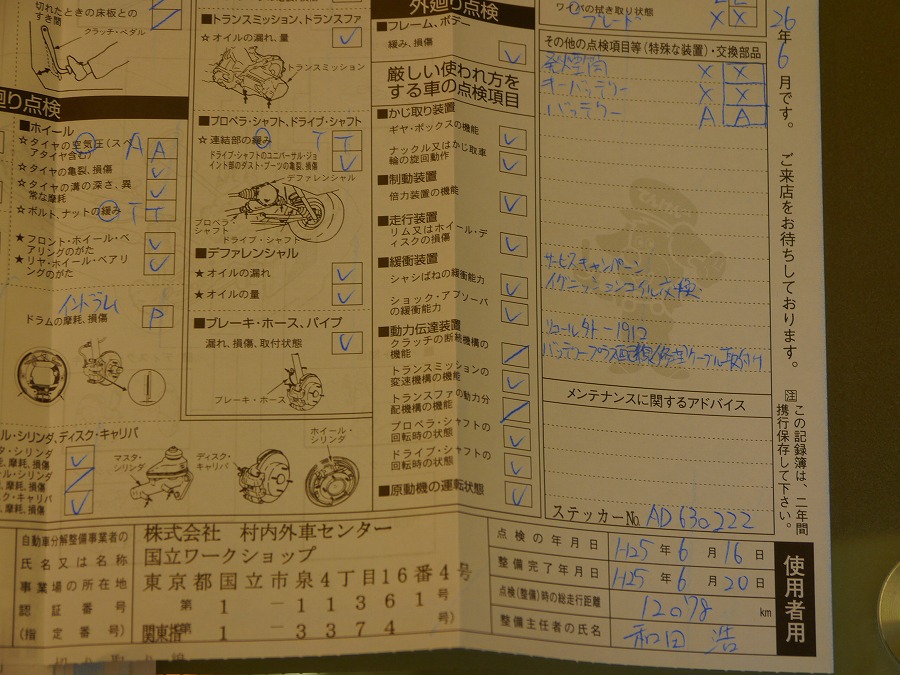 切れたときの床板との
すき間
クラッチ・ペダル
廻り点検
■ホイール
☆タイヤの空気圧(スペ
アタイヤ含む) A A
☆タイヤの亀裂、損傷
☆タイヤの溝の深さ、異
常な摩耗
☆ボルト、ナットの緩み T T
★フロント・ホイール・ベ
アリングのがた
★リヤ・ホイール・ベアリ
ングのがた
インドラム
ドラムの摩耗、損傷 P
ル・シリンダ、ディスク・キャリパ
タ・シリンダ
摩耗、損傷
ール・シリンダ
摩耗、損傷
ク・キャリパ
摩耗、損傷
マスタ・
シリンダ
ディスク・
キャリパ
ホイール・
シリンダ
■トランスミッション、トランスファ
☆オイルの漏れ、量
トランスミッション
■プロペラ・シャフト、ドライブ・シャフト
☆連結部の緩み T T
ドライブ・シャフトのユニバーサル・ジョ
イント部のダスト・ブーツの亀裂、損傷
デファレンシャル
プロペラ・
シャフト
ドライブ・シャフト
■デファレンシャル
★オイルの漏れ
☆オイルの量
■ブレーキ・ホース、パイプ
漏れ、損傷、取付状態
ブレーキ・ホース
外廻り点検
■フレーム、ボデー
緩み、損傷
厳しい使われ方を
する車の点検項目
■かじ取り装置
ギヤ・ボックスの機能
ナックル又はかじ取車
輪の旋回動作
■制動装置
倍力装置の機能
■走行装置
リム又はホイール・ディ
スクの損傷
■緩衝装置
シャシばねの緩衝能力
ショック・アブソーバ
の緩衝能力
■動力伝達装置
クラッチの断続機構の
機能
トランスミッションの
変速機構の機能
トランスファの動力分
配機構の機能
プロペラ・シャフトの
回転時の状態
ドライブ・シャフトの
回転時の状態
■原動機の運転状態
ワイパの拭き取り状態
ブレード X X
その他の点検項目等(特殊な装置)・交換部品
発煙筒 X X
キーバッテリー X X
バッテリー A A
サービスキャンペーン
イグニッションコイル交換
リコール外-1912
バッテリープラス配線修理ケーブル取付け
メンテナンスに関するアドバイス
ステッカーNo. AD630222
26年6月です。 ご来店をお待ちしております。
注 この記録簿は、二年間
携行保存して下さい。
自動車分解整備事業者の
氏名又は名称
事業場の所在地
認証番号
(指定番号)
株式会社 村内外車センター
国立ワークショップ
東京都国立市泉4丁目16番4号
第 1-11361号
関東指第 1-3374号
点検の年月日 H25年6月16日
整備完了年月日 H25年6月20日
点検(整備)時の総走行距離 12078 km
整備主任者の氏名 和田 浩
使用者用